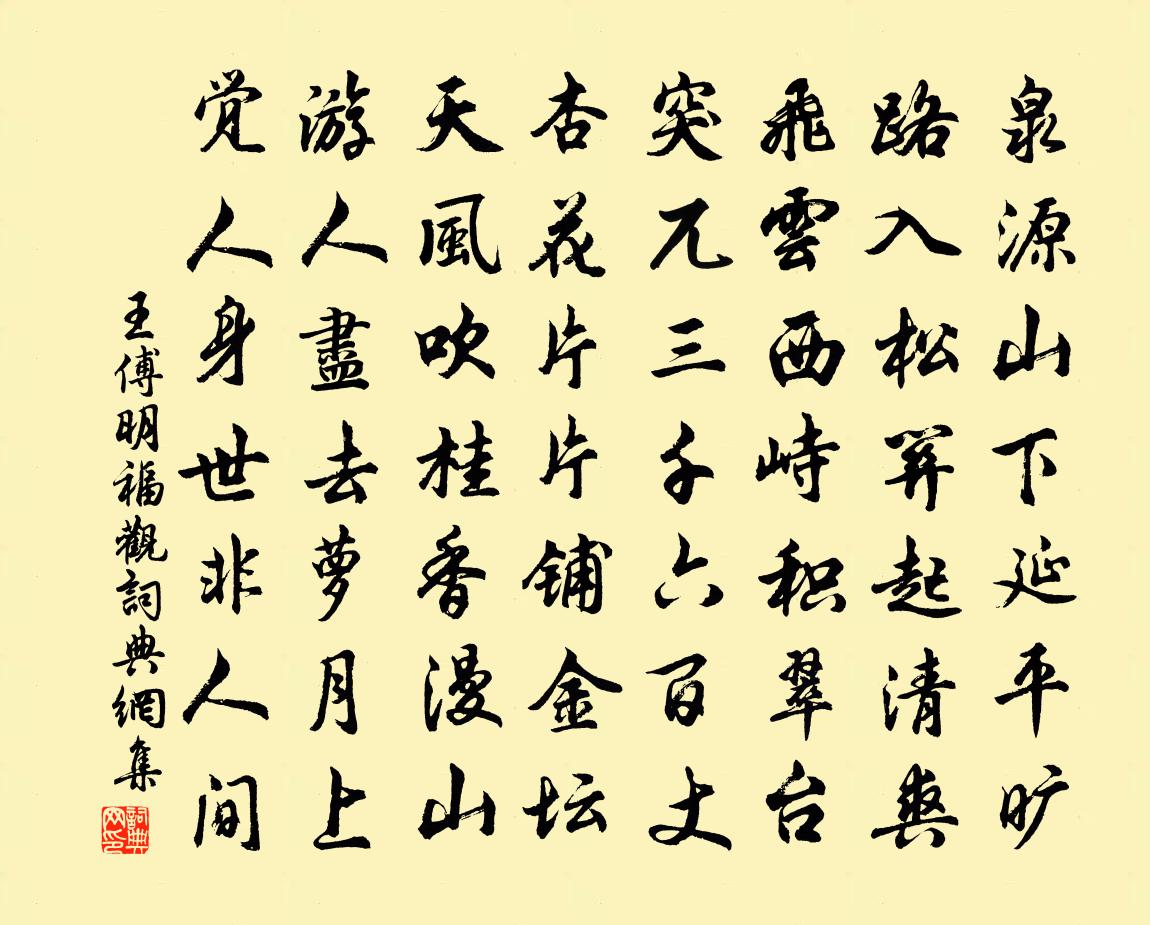 泉源山下延平旷
路入松關起清爽
飛雲西峙积翠台
突兀三千六百丈
杏花片片铺金坛
天風吹桂香漫山
游人盡去萝月上
觉人身世非人间
王傅明福觀詞典網集
詞典网印